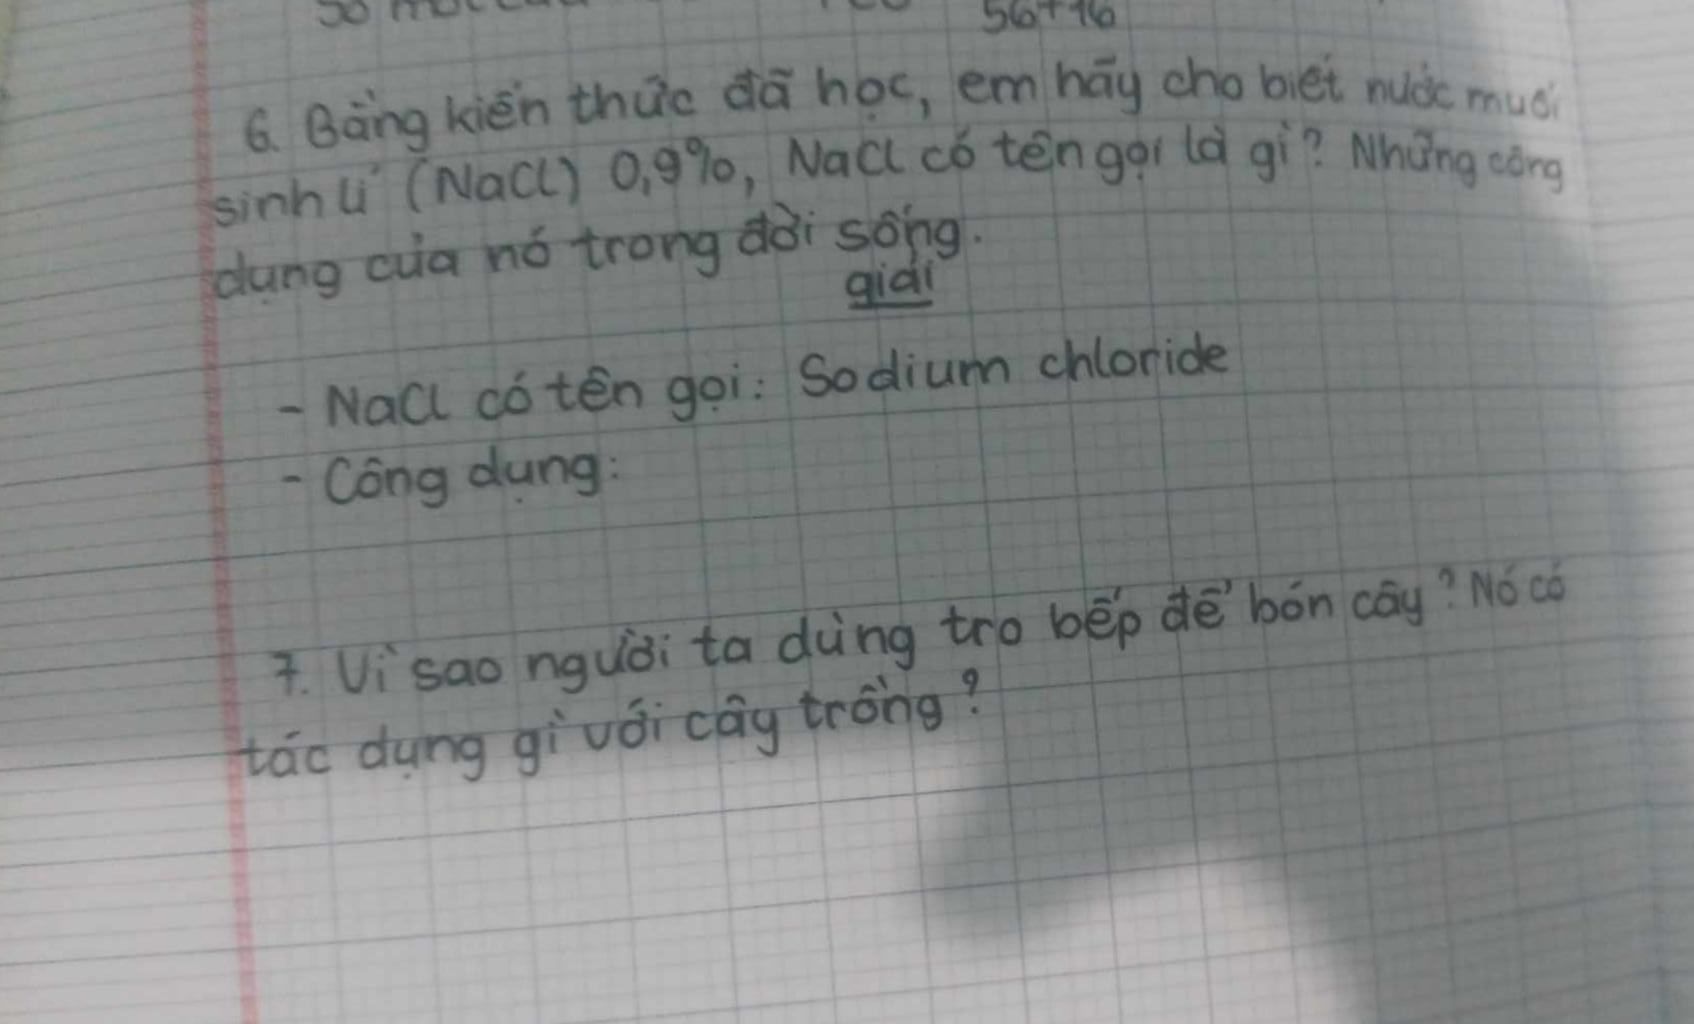 56+16
6. Bằng kiến thức đã học, em hãy cho biết nước muối
sinh lí (NaCl) 0,9%, NaCl có tên gọi là gì? Những công
dụng của nó trong đời sống.
giải
- NaCl có tên gọi: Sodium chloride
- Công dụng:
7. Vì sao người ta dùng tro bếp để bón cây? Nó có
tác dụng gì với cây trồng?